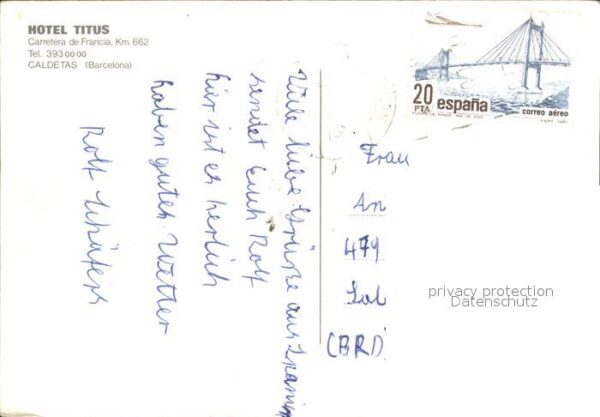 HOTEL TITUS
Carretera de Francia, Km. 662
Tel. 393 00 00
CALDETAS (Barcelona)
Viele liebe Grüße aus Spanien
sendet Euch Rolf
hier ist es herlich
haben guten Wetter
Rolf Schäfer
20
PTA
españa
correo aéreo
Frau
An
479
(BRD)
privacy protection
Datenschutz